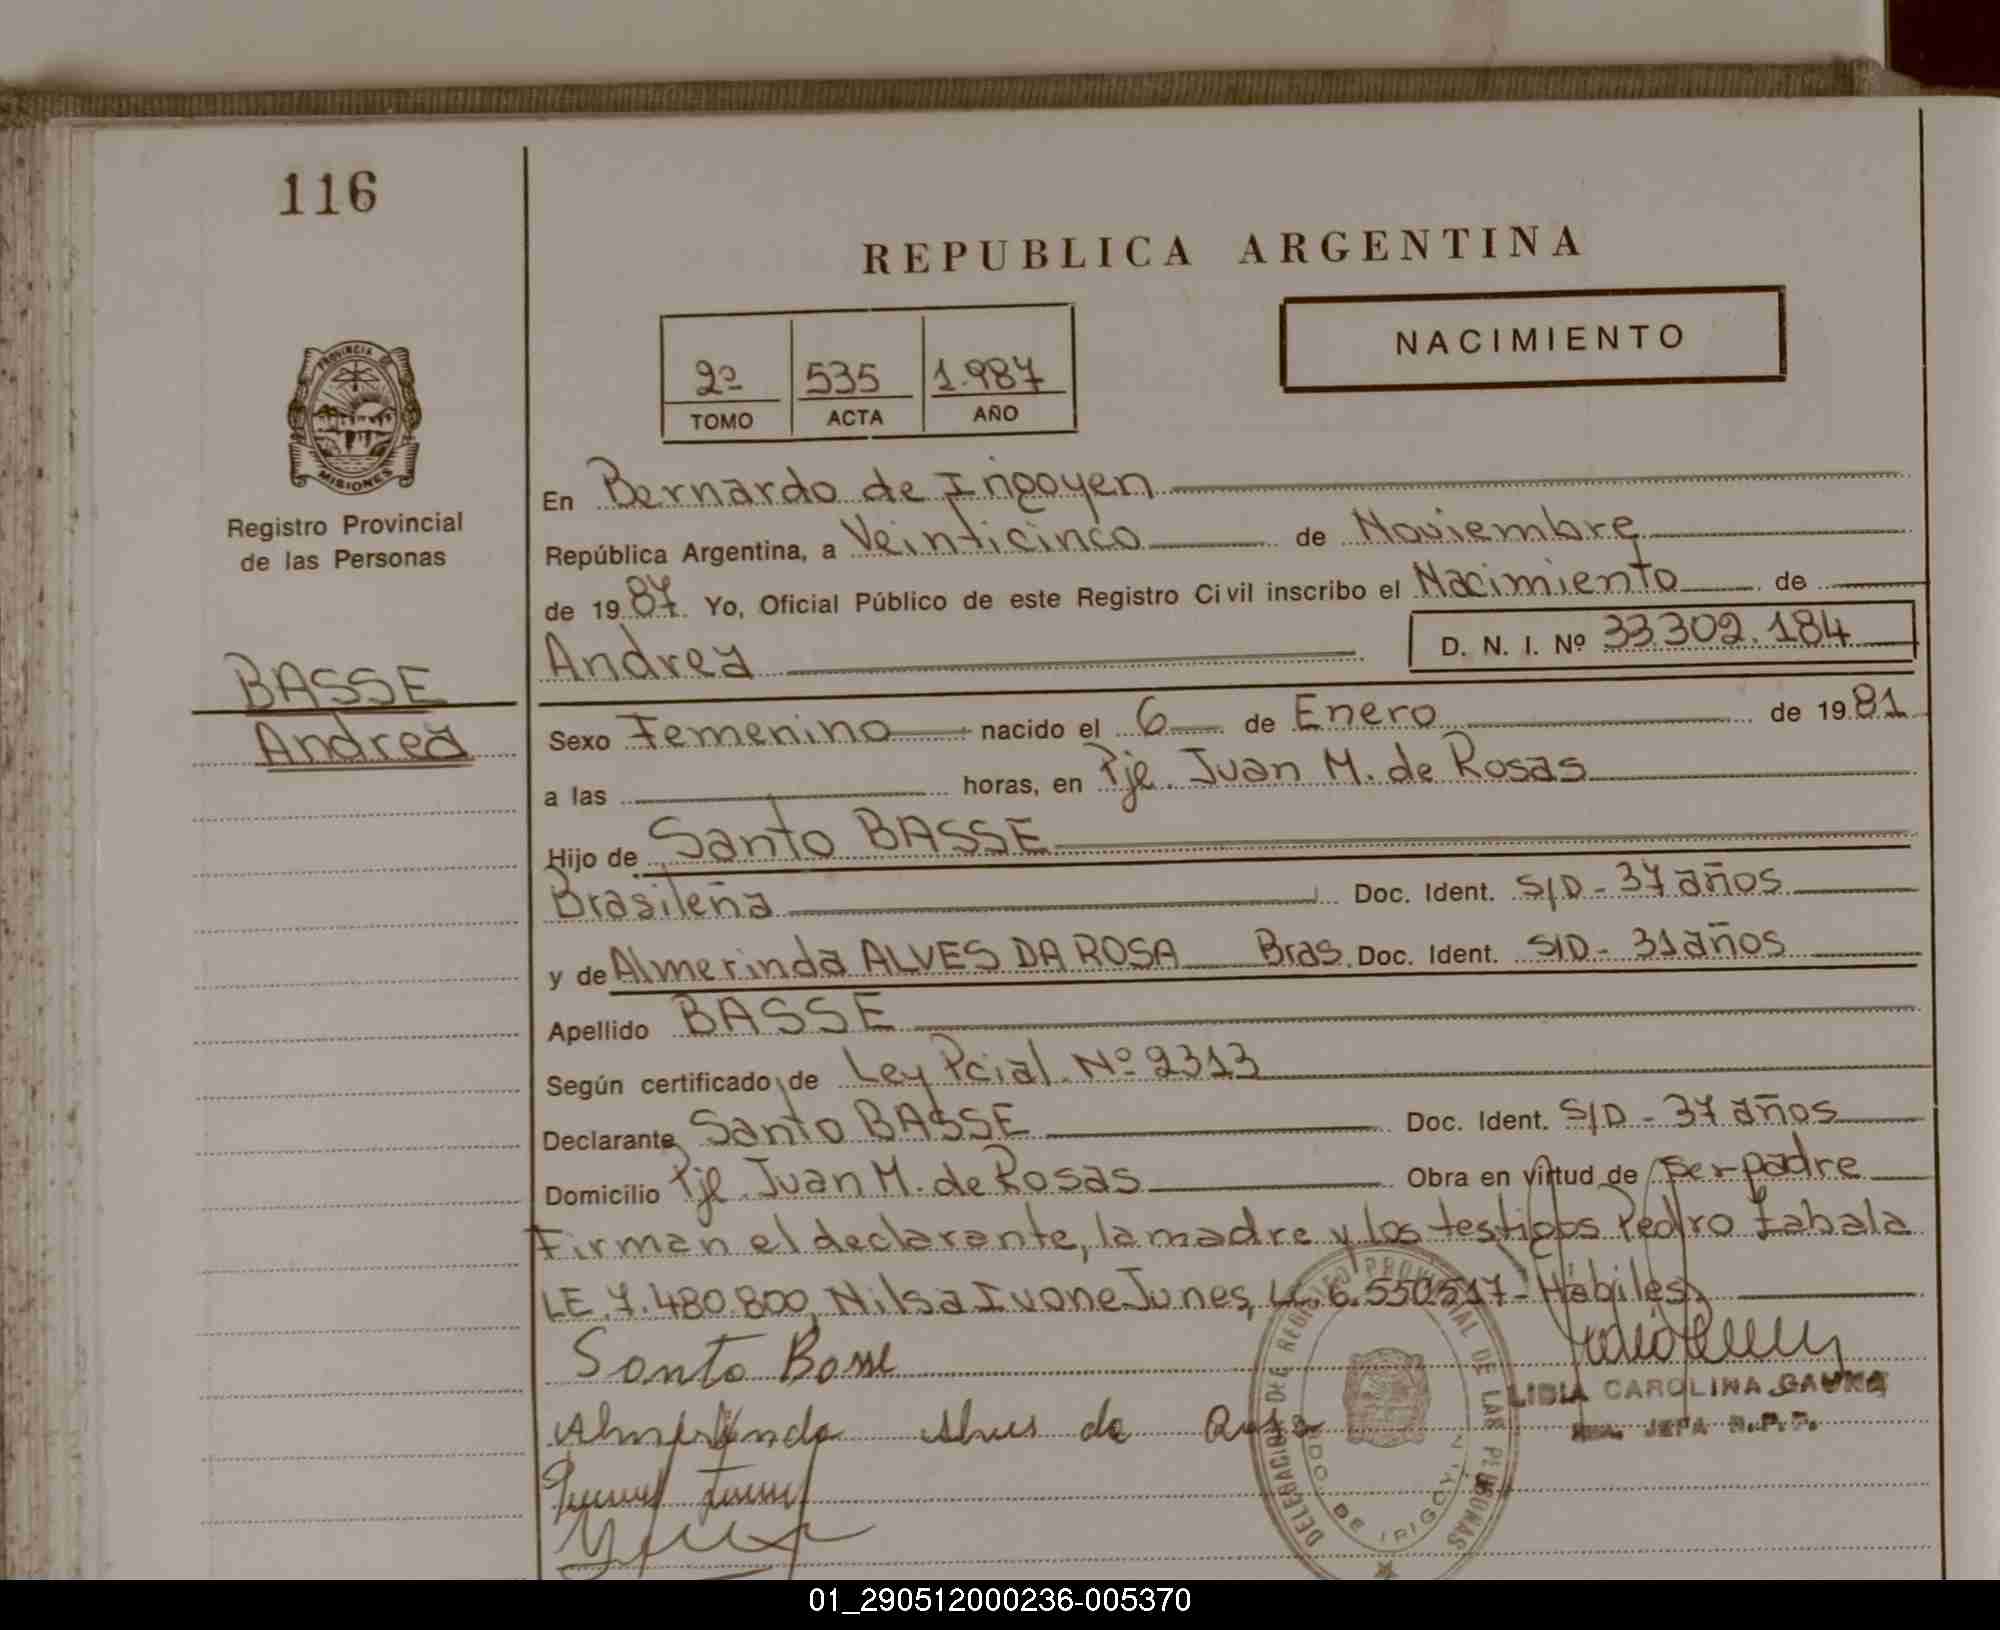 116
REPUBLICA ARGENTINA
NACIMIENTO
2º 535 1.987
TOMO ACTA AÑO
PROVINCIA DE
MISIONES
Registro Provincial
de las Personas
BASSE
Andrea
En Bernardo de Irigoyen
República Argentina, a Veinticinco de Noviembre
de 1987. Yo, Oficial Público de este Registro Civil inscribo el Nacimiento de
Andrea D. N. I. Nº 33.302.184
Sexo Femenino nacido el 6 de Enero de 1981
a las horas, en Pje. Juan M. de Rosas
Hijo de Santo BASSE
Brasileña Doc. Ident. S/D - 37 años
y de Almerinda ALVES DA ROSA Bras. Doc. Ident. S/D - 31 años
Apellido BASSE
Según certificado de Ley Pcial. Nº 2313
Declarante Santo BASSE Doc. Ident. S/D - 37 años
Domicilio Pje. Juan M. de Rosas Obra en virtud de ser padre
Firman el declarante, la madre y los testigos Pedro Zabala
LE. 7.480.800, Nilsa Ivone Junes, LC. 6.550.517 - Hábiles.
Santo Basse
LIDIA CAROLINA GAUKA
JEFA R.P.P.
Almerinda Alves da Rosa
DELEGACION DEL REGISTRO PROVINCIAL DE LAS PERSONAS
BDO. DE IRIGOYEN
01_290512000236-005370